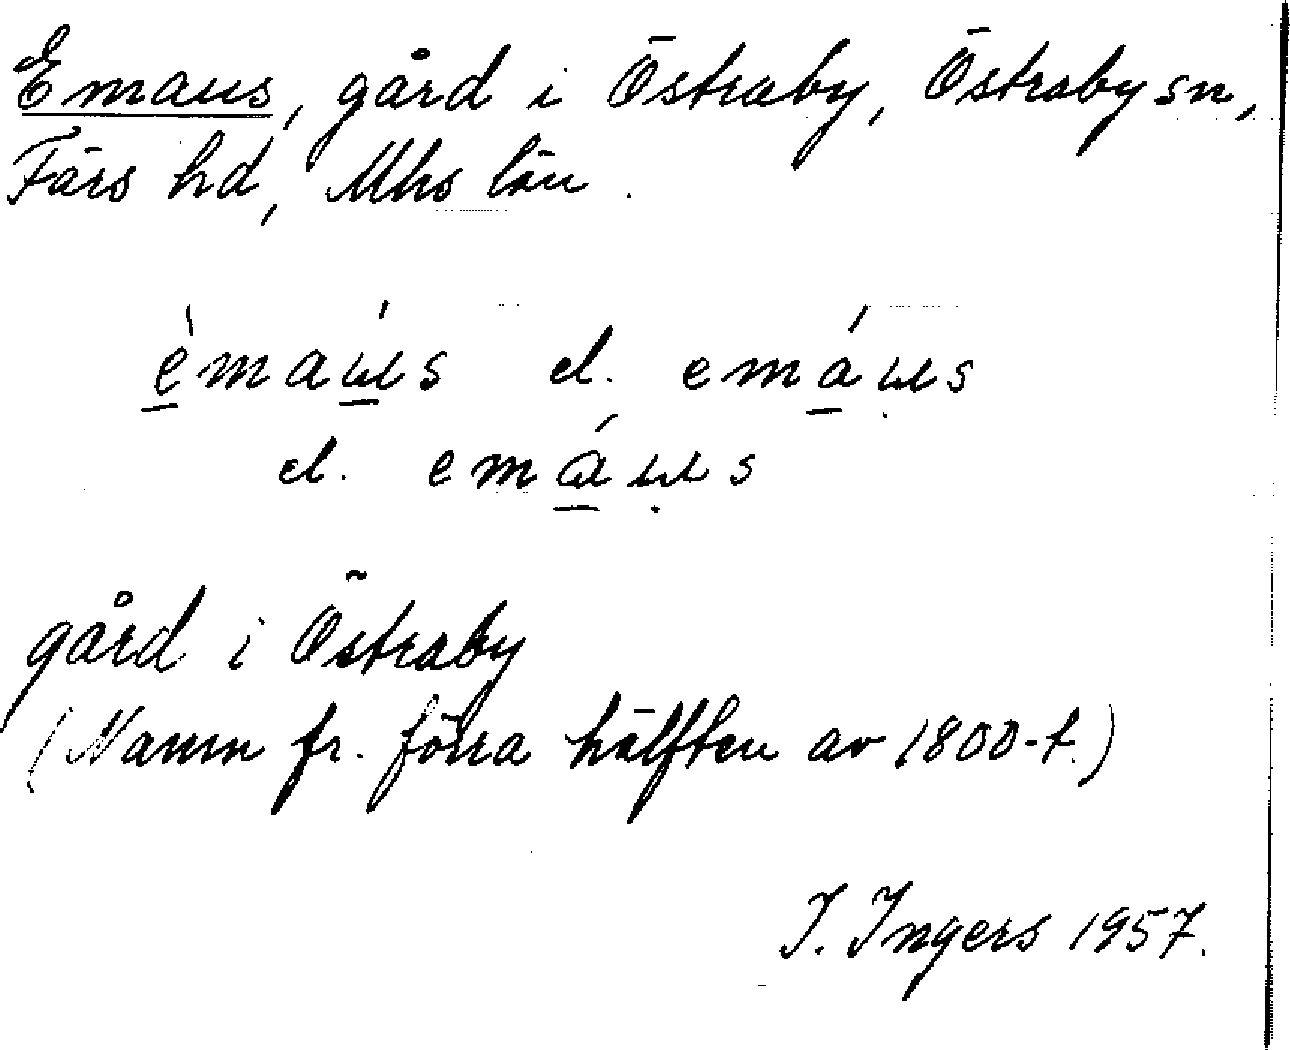 Emaus, gård i Östraby, Östraby sn,
Färs hd, Mhs län.
èmaúıs el. emáuıs
el. emáuıs
gård i Östraby
(Namn fr. förra hälften av 1800-t.)
I. Ingers 1957.